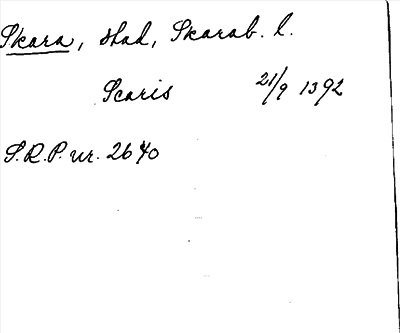 Skara, stad, Skarab. l.
Scaris 21/9 1392
S.R.P. nr. 2640